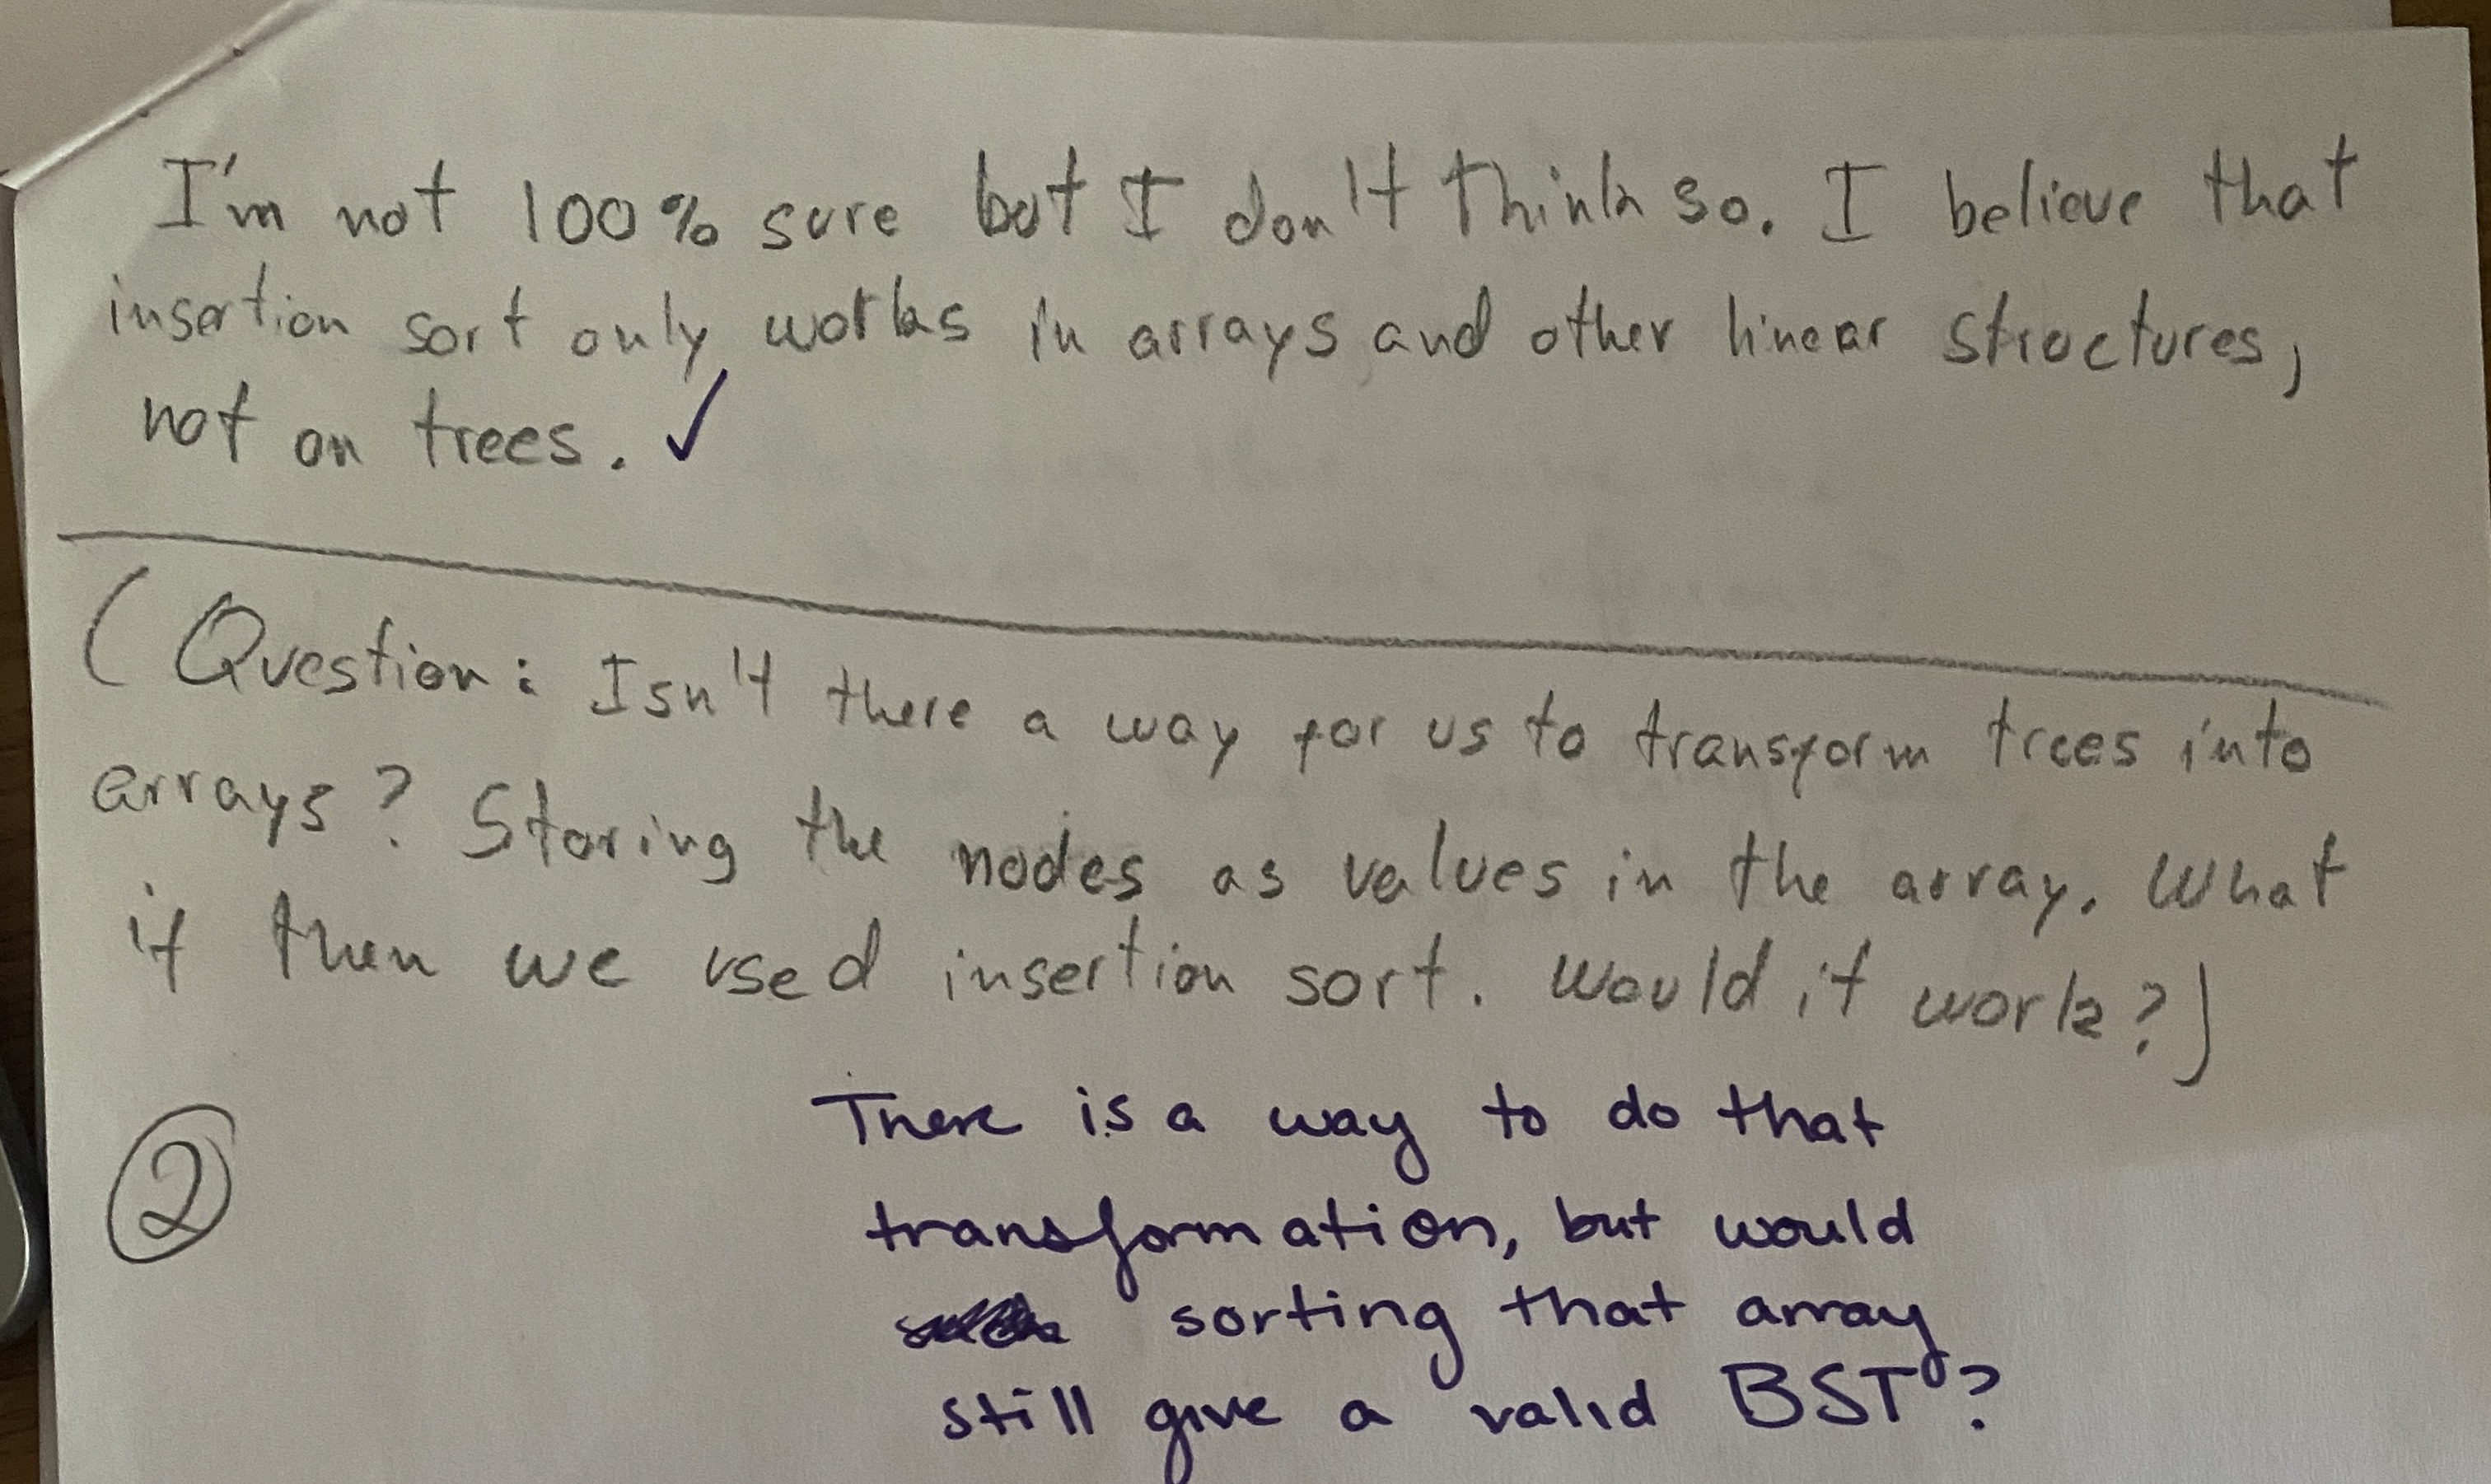 I'm not 100% sure but I don't think so. I believe that
insertion sort only works in arrays and other linear structures,
not on trees. ✓
(Question: Isn't there a way for us to transform trees into
arrays? Storing the nodes as values in the array. What
if then we used insertion sort. Would it work?)
There is a way to do that
transformation, but would
sorting that array
still give a valid BST?
2